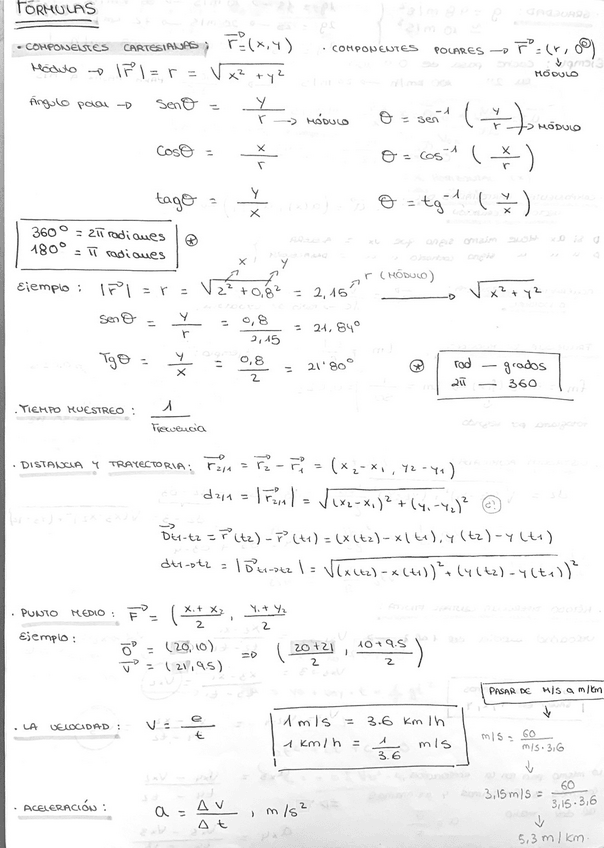 FÓRMULAS
· COMPONENTES CARTESIANAS: r⃗=(x,y)   · COMPONENTES POLARES → r⃗=(r, θ)
Módulo → |r⃗| = r = √(x² + y²)   MÓDULO
Ángulo polar → senθ = y/r → MÓDULO   θ = sen⁻¹ (y/r) → MÓDULO
cosθ = x/r   θ = cos⁻¹ (x/r)
tagθ = y/x   θ = tg⁻¹ (y/x)
360° = 2π radianes
180° = π radianes ⊛
x y
Ejemplo: |r⃗| = r = √(2² + 0,8²) = 2,15 r (MÓDULO) → √(x² + y²)
senθ = y/r = 0,8/2,15 = 21,84°
Tgθ = y/x = 0,8/2 = 21'80°
⊛ rad — grados
2π — 360
· TIEMPO MUESTREO: 1/Frecuencia
· DISTANCIA Y TRAYECTORIA: r⃗2/1 = r⃗2 - r⃗1 = (x2-x1, y2-y1)
d2/1 = |r⃗2/1| = √((x2-x1)² + (y1-y2)²)
D⃗t1-t2 = r⃗(t2) - r⃗(t1) = (x(t2)-x(t1), y(t2)-y(t1)
dt1→t2 = |D⃗t1→t2| = √((x(t2)-x(t1))² + (y(t2)-y(t1))²)
· PUNTO MEDIO: F⃗ = (x1+x2/2, y1+y2/2
Ejemplo:
O⃗ = (20,10)
V⃗ = (21,9.5) ⇒ (20+21/2, 10+9.5/2)
PASAR DE M/S a m/km
· LA VELOCIDAD: V = e/t
1 m/s = 3.6 km/h
1 km/h = 1/3.6 m/s
m/s = 60/m/s·3,6
3,15m/s = 60/3,15·3,6
5,3 m/km
· ACELERACIÓN: a = ΔV/Δt, m/s²